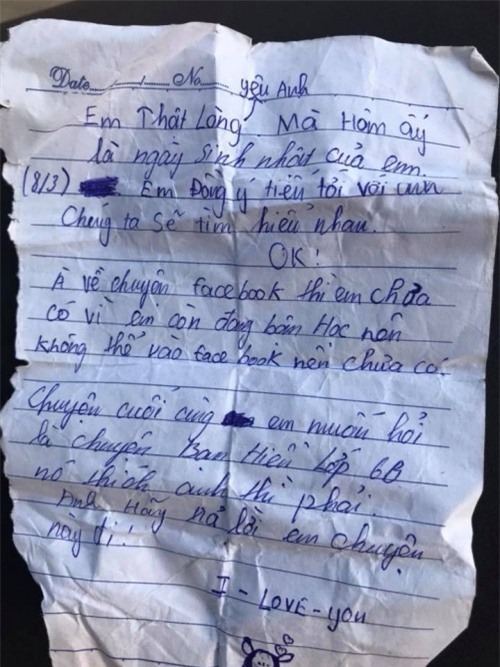 Date....../....../...... No
yêu Anh
Em Thật Lòng. Mà Hôm ấy
là ngày sinh nhật của em.
(8/3) Em Đồng ý tiến tới với anh
Chúng ta Sẽ tìm hiểu nhau.
OK!
À về chuyện facebook thì em chưa
có vì em còn đang bận Học nên
không thể vào face book nên chưa có.
Chuyện cuối cùng em muốn hỏi
là chuyện Bạn Hiền Lớp 6B
nó thích anh thì phải.
Anh Hãy nả lời em chuyện
này đi!
I - LOVE - you